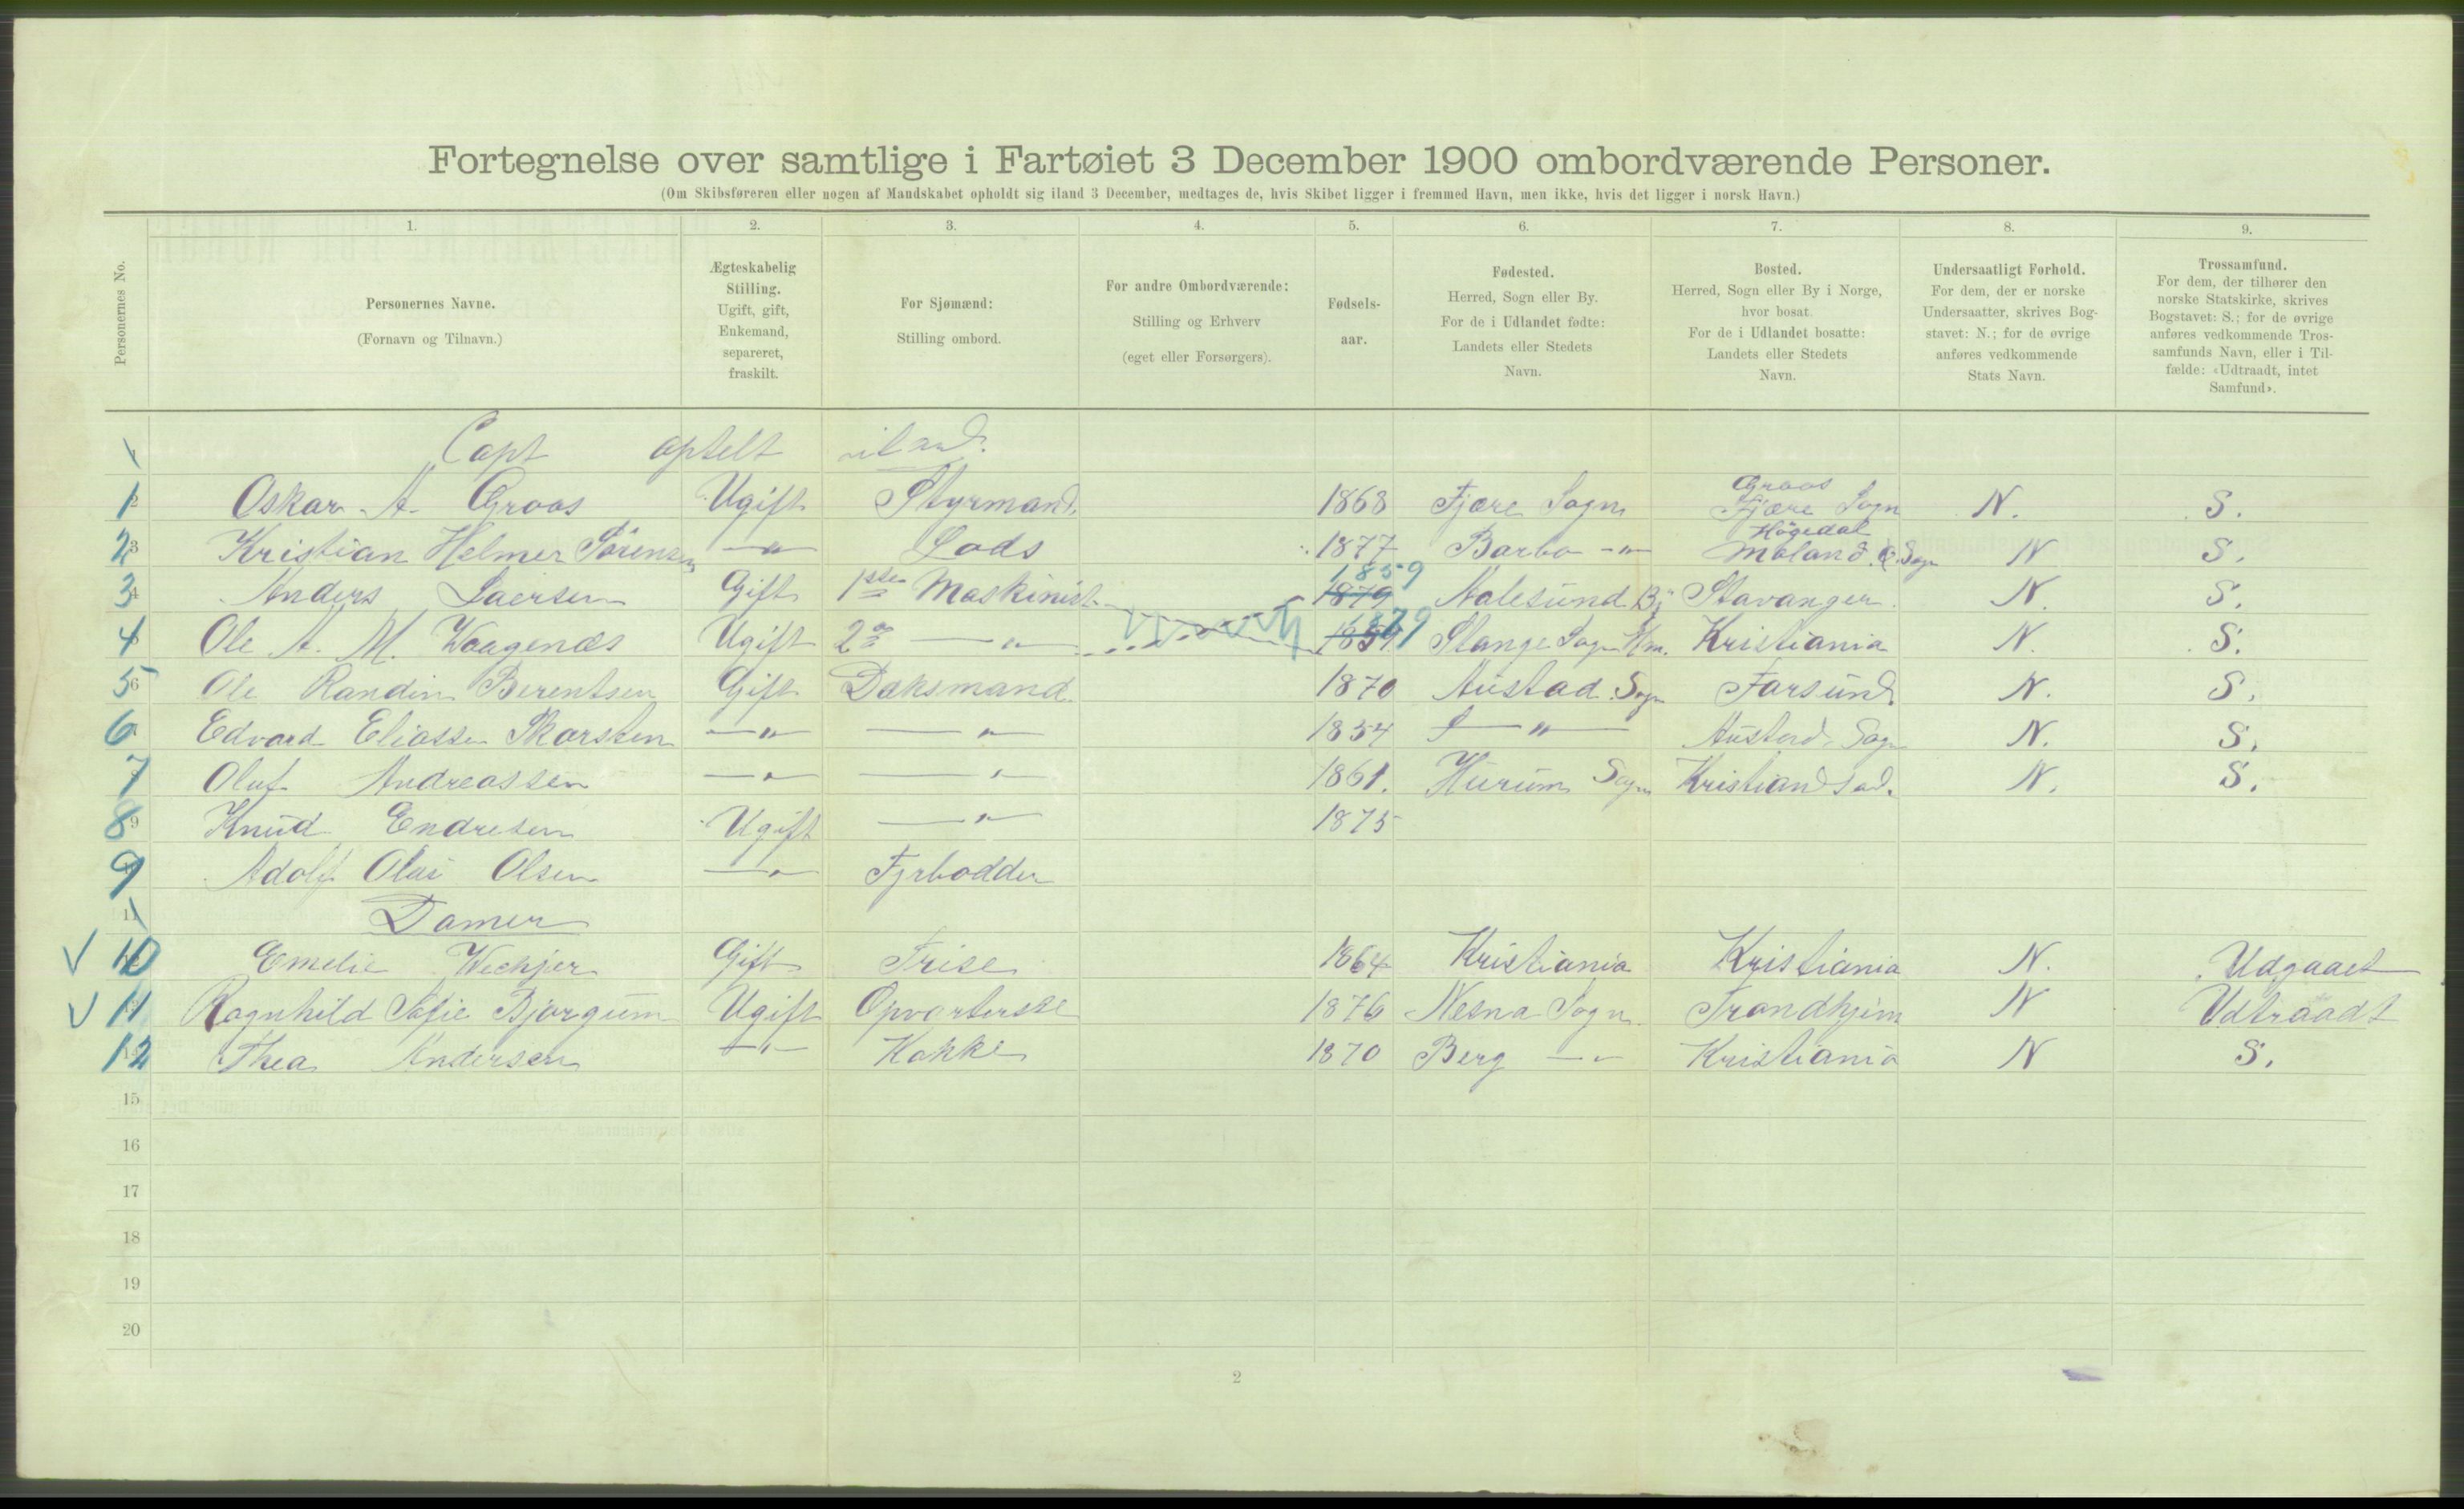 Fortegnelse over samtlige i Fartøiet 3 December 1900 ombordværende Personer.
(Om Skibsføreren eller nogen af Mandskabet opholdt sig iland 3 December, medtages de, hvis Skibet ligger i fremmed Havn, men ikke, hvis det ligger i norsk Havn.)
1. 2. 3. 4. 5. 6. 7. 8. 9.
Personernes No.
Personernes Navne.
(Fornavn og Tilnavn.)
Ægteskabelig
Stilling.
Ugift, gift,
Enkemand,
separeret,
fraskilt.
For Sjømænd:
Stilling ombord.
For andre Ombordværende:
Stilling og Erhverv
(eget eller Forsørgers).
Fødsels-
aar.
Fødested.
Herred, Sogn eller By.
For de i Udlandet fødte:
Landets eller Stedets
Navn.
Bosted.
Herred, Sogn eller By i Norge,
hvor bosat.
For de i Udlandet bosatte:
Landets eller Stedets
Navn.
Undersaatligt Forhold.
For dem, der er norske
Undersaatter, skrives Bog-
stavet: N.; for de øvrige
anføres vedkommende
Stats Navn.
Trossamfund.
For dem, der tilhører den
norske Statskirke, skrives
Bogstavet: S.; for de øvrige
anføres vedkommende Tros-
samfunds Navn, eller i Til-
fælde: «Udtraadt, intet
Samfund».
Capt optelt iland.
Groos
1 Oskar A. Groos Ugift Styrmand. 1868 Fjære Sogn Fjære Sogn N. S.
Högedal
2 Kristian Helmer Sörensen —"— Lods 1877 Barbo —"— Moland Ö. Sogn N S.
1859
3 Anders Laersen Gift 1ste Maskinist 1879 Aalesund By Stavanger. N. S.
4 Ole A. M. Waagenæs Ugift 2den —"— 1859 1879 Stange Sogn Hm. Kristiania N. S.
5 Ole Randin Berentsen Gift Dæksmand 1870 Austad Sogn Farsund. N. S.
6 Edvard Eliassen Skarsten —"— —"— 1854 —"— Austad Sogn N. S.
7 Oluf Andreassen —"— —"— 1861. Hurum Sogn Kristiansad. N. S.
8 Knud Endresen Ugift —"— 1875
9 Adolf Olai Olsen —"— Fyrbødder
Damer
10 Emelie Wechjer Gift Trise 1864 Kristiania Kristiania N. Udgaaet
11 Ragnhild Sofie Bjørgum Ugift Opvarterske 1876 Nesna Sogn. Trondhjem N Udtraadt
12 Thea Andersen —"— Kokke 1870 Berg —"— Kristiania N S.
15
16
17
18
19
20
2